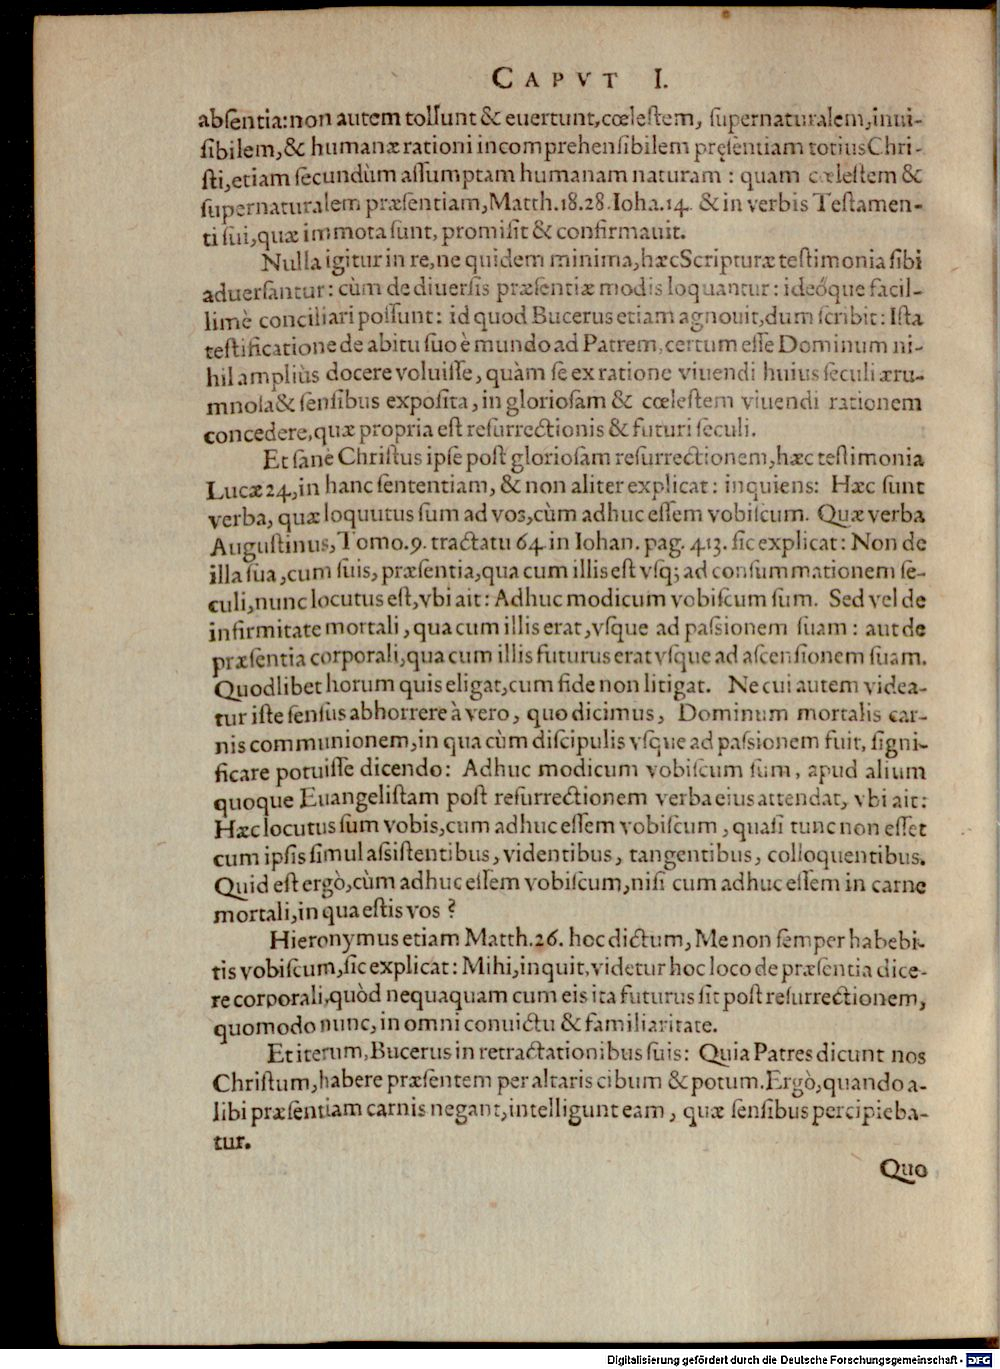 CAPVT I.
absentia: non autem tollunt & euertunt, cœlestem, supernaturalem, inui-
sibilem, & humanæ rationi incomprehensibilem pręsentiam totius Chri-
sti, etiam secundùm assumptam humanam naturam: quam cœlestem &
supernaturalem præsentiam, Matth. 18. 28. Ioha. 14. & in verbis Testamen-
ti sui, quæ immota sunt, promisit & confirmauit.
Nulla igitur in re, ne quidem minima, hæc Scripturæ testimonia sibi
aduersantur: cùm de diuersis præsentiæ modis loquantur: ideóque facil-
limè conciliari possunt: id quod Bucerus etiam agnouit, dum scribit: Ista
testificatione de abitu suo è mundo ad Patrem, certum esse Dominum ni-
hil ampliùs docere voluisse, quàm se ex ratione viuendi huius seculi æru-
mnosa & sensibus exposita, in gloriosam & cœlestem viuendi rationem
concedere, quæ propria est resurrectionis & futuri seculi.
Et sanè Christus ipse post gloriosam resurrectionem, hæc testimonia
Lucæ 24., in hanc sententiam, & non aliter explicat: inquiens: Hæc sunt
verba, quæ loquutus sum ad vos, cùm adhuc essem vobiscum. Quæ verba
Augustinus, Tomo. 9. tractatu 64. in Iohan. pag. 413. sic explicat: Non de
illa sua, cum suis, præsentia, qua cum illis est vsq; ad consummationem se-
culi, nunc locutus est, vbi ait: Adhuc modicum vobiscum sum. Sed vel de
infirmitate mortali, qua cum illis erat, vsque ad passionem suam: aut de
præsentia corporali, qua cum illis futurus erat vsque ad ascensionem suam.
Quodlibet horum quis eligat, cum fide non litigat. Ne cui autem videa-
tur iste sensus abhorrere à vero, quo dicimus, Dominum mortalis car-
nis communionem, in qua cùm discipulis vsque ad passionem fuit, signi-
ficare potuisse dicendo: Adhuc modicum vobiscum sum, apud alium
quoque Euangelistam post resurrectionem verba eius attendat, vbi ait:
Hæc locutus sum vobis, cum adhuc essem vobiscum, quasi tunc non esset
cum ipsis simul assistentibus, videntibus, tangentibus, colloquentibus.
Quid est ergò, cùm adhuc essem vobiscum, nisi cum adhuc essem in carne
mortali, in qua estis vos?
Hieronymus etiam Matth. 26. hoc dictum, Me non semper habebi-
tis vobiscum, sic explicat: Mihi, inquit, videtur hoc loco de præsentia dice-
re corporali, quòd nequaquam cum eis ita futurus sit post resurrectionem,
quomodo nunc, in omni conuictu & familiaritate.
Et iterum, Bucerus in retractationibus suis: Quia Patres dicunt nos
Christum, habere præsentem per altaris cibum & potum. Ergò, quando a-
libi præsentiam carnis negant, intelligunt eam, quæ sensibus percipieba-
tur.
Quo
Digitalisierung gefördert durch die Deutsche Forschungsgemeinschaft - DFG